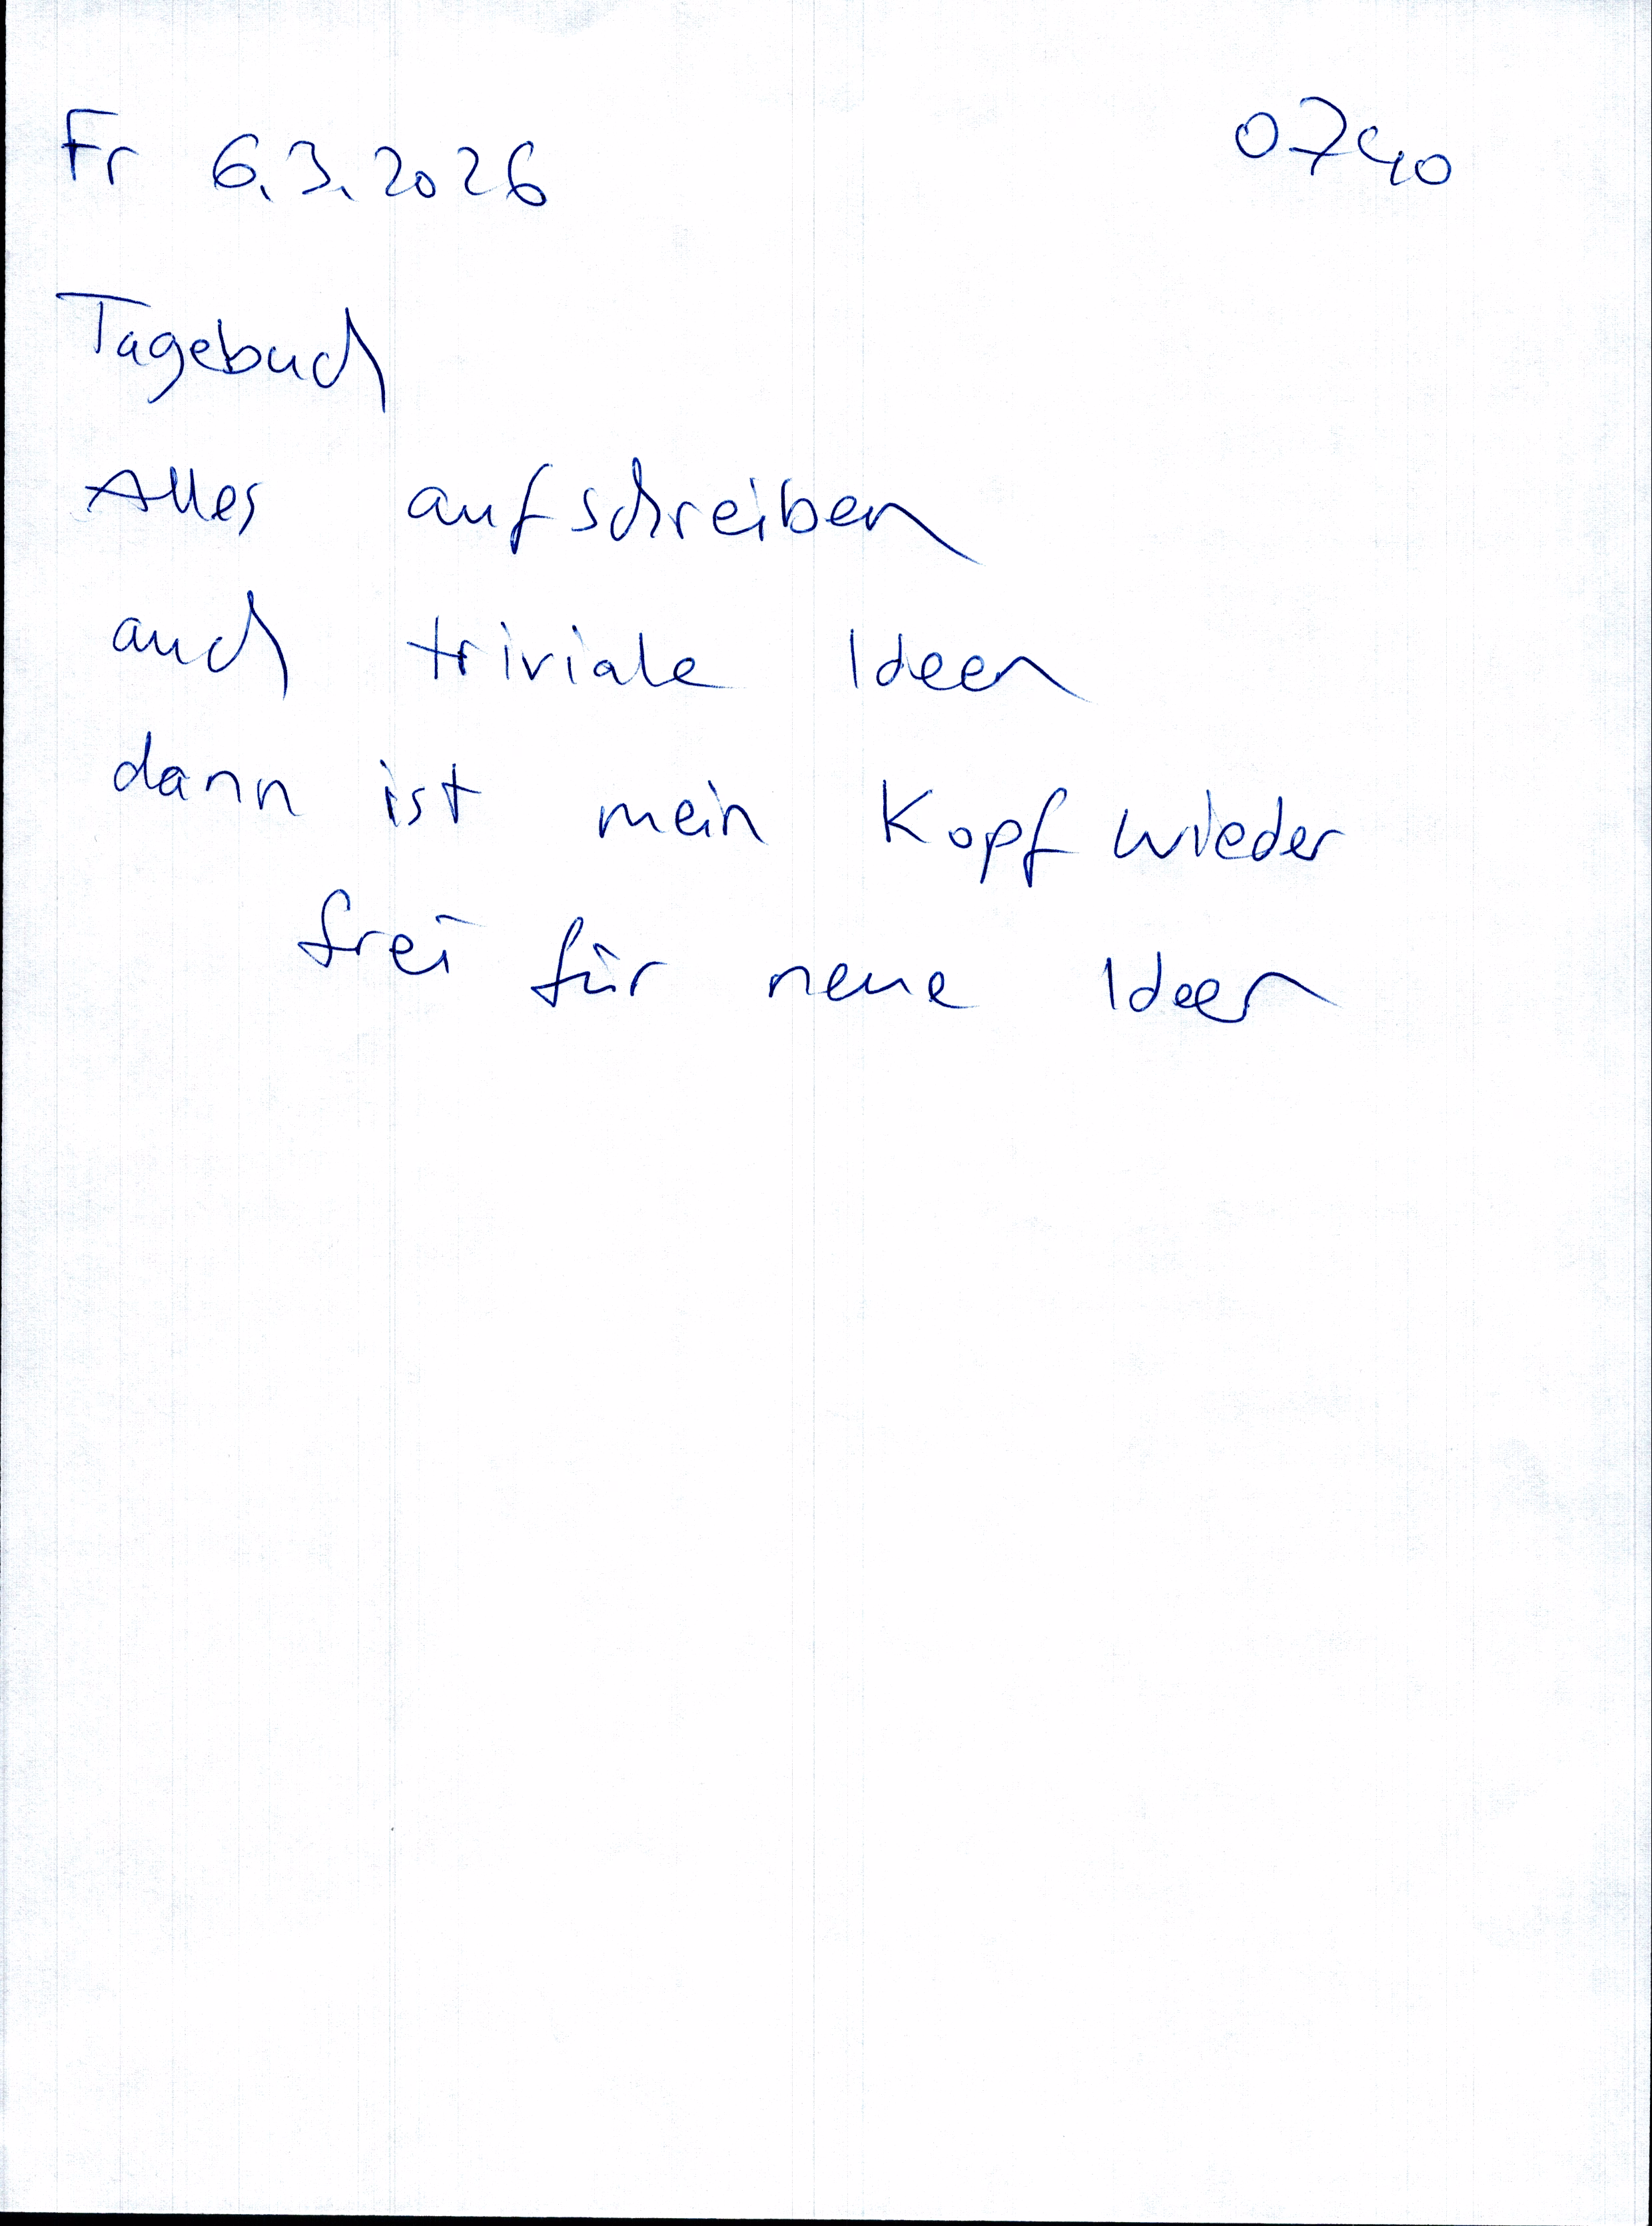 Fr 6.3.2026 0740
Tagebuch
Alles aufschreiben
auch triviale Ideen
dann ist mein Kopf wieder
frei für neue Ideen